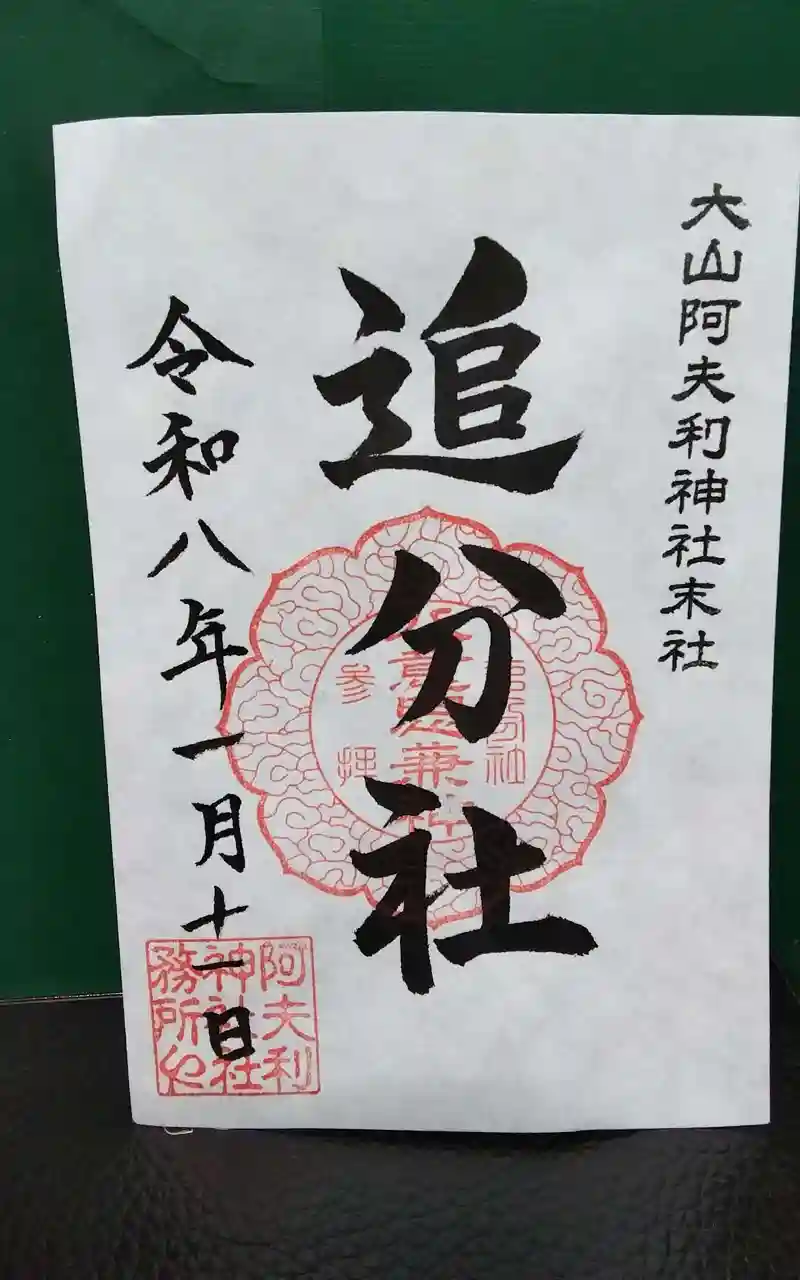 大山阿夫利神社末社
追分社
八意思兼神
参拝
令和八年一月十一日
阿夫利
神社社
務所印